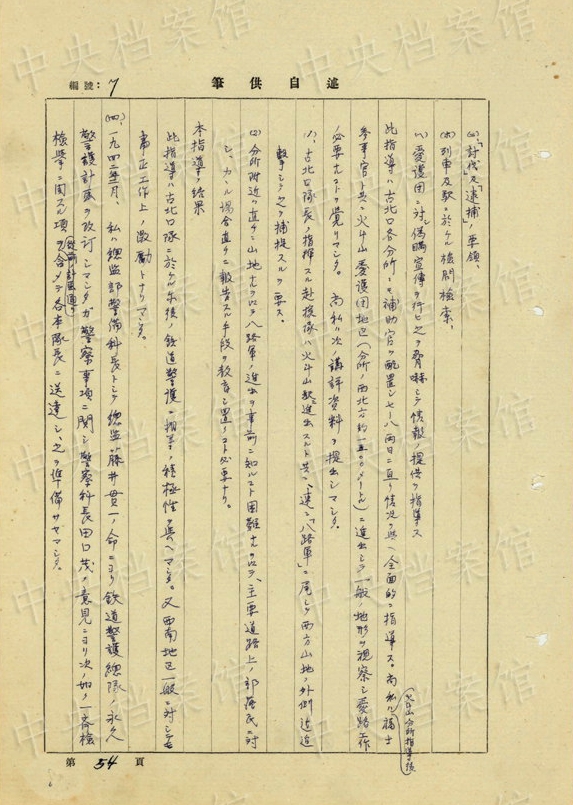 編號:7
筆供自述
(二)、「討伐」及「逮捕」ノ要領、
(ホ)列車及駅ニ於ケル検問検索、
(ハ)愛護団ニ対シ偽瞞宣伝ヲ行ヒ之ヲ脅嚇シテ情報ノ提供ヲ指導ス
此指導ハ古北口各分所ニモ補助官ヲ配置シ七ー八両日ニ亘リ情況ヲ与ヘ全面的ニ指導ス。尚私ハ福士
(火斗山分所指導後)
参事官ト共ニ火斗山愛護団地区(分所ノ西北方約一五〇〇メートル)ニ進出シテ一般ノ地形ヲ視察シ愛路工作
必要ナコトヲ覚リマシタ。尚私ハ次ノ講評資料ヲ提出シマシタ。
(1)、古北口隊長ノ指揮スル赴援隊ハ火斗山駅ニ進出スルト共ニ、速ニ「八路軍」ニ尾シテ西方山地ノ外側迄追
撃シテ之ヲ捕捉スルヲ要ス。
(2)分所附近ハ直チニ山地ナルヲ以テ八路軍ノ進出ヲ事前ニ知ルコト困難ナルヲ以テ、主要道路上ノ部落民ニ対
シ、カヽル場合直チニ報告スル手段ヲ教育シ置クコト必要ナリ。
本指導ノ結果
此指導ハ古北口隊ニ於ケル今後ノ鉄道警護ニ相当ノ積極性ヲ与ヘマシタ。又西南地区一般ニ対シテモ
粛正工作上ノ激励トナリマシタ。
(四)、一九四二年 月、私ハ總監部警備科長トシテ總監藤井貫一ノ命ニヨリ鉄道警護總隊ノ永久
警護計画ヲ改訂シマシタガ警察事項ニ関シ警察科長田口茂ノ意見ニヨリ次ノ如ク一斉検
(従前計画通リ)
検挙ニ関スル項ヲ含メテ各本隊長ニ送達シ、之ヲ準備サセマシタ。
第 54 頁
中央档案馆